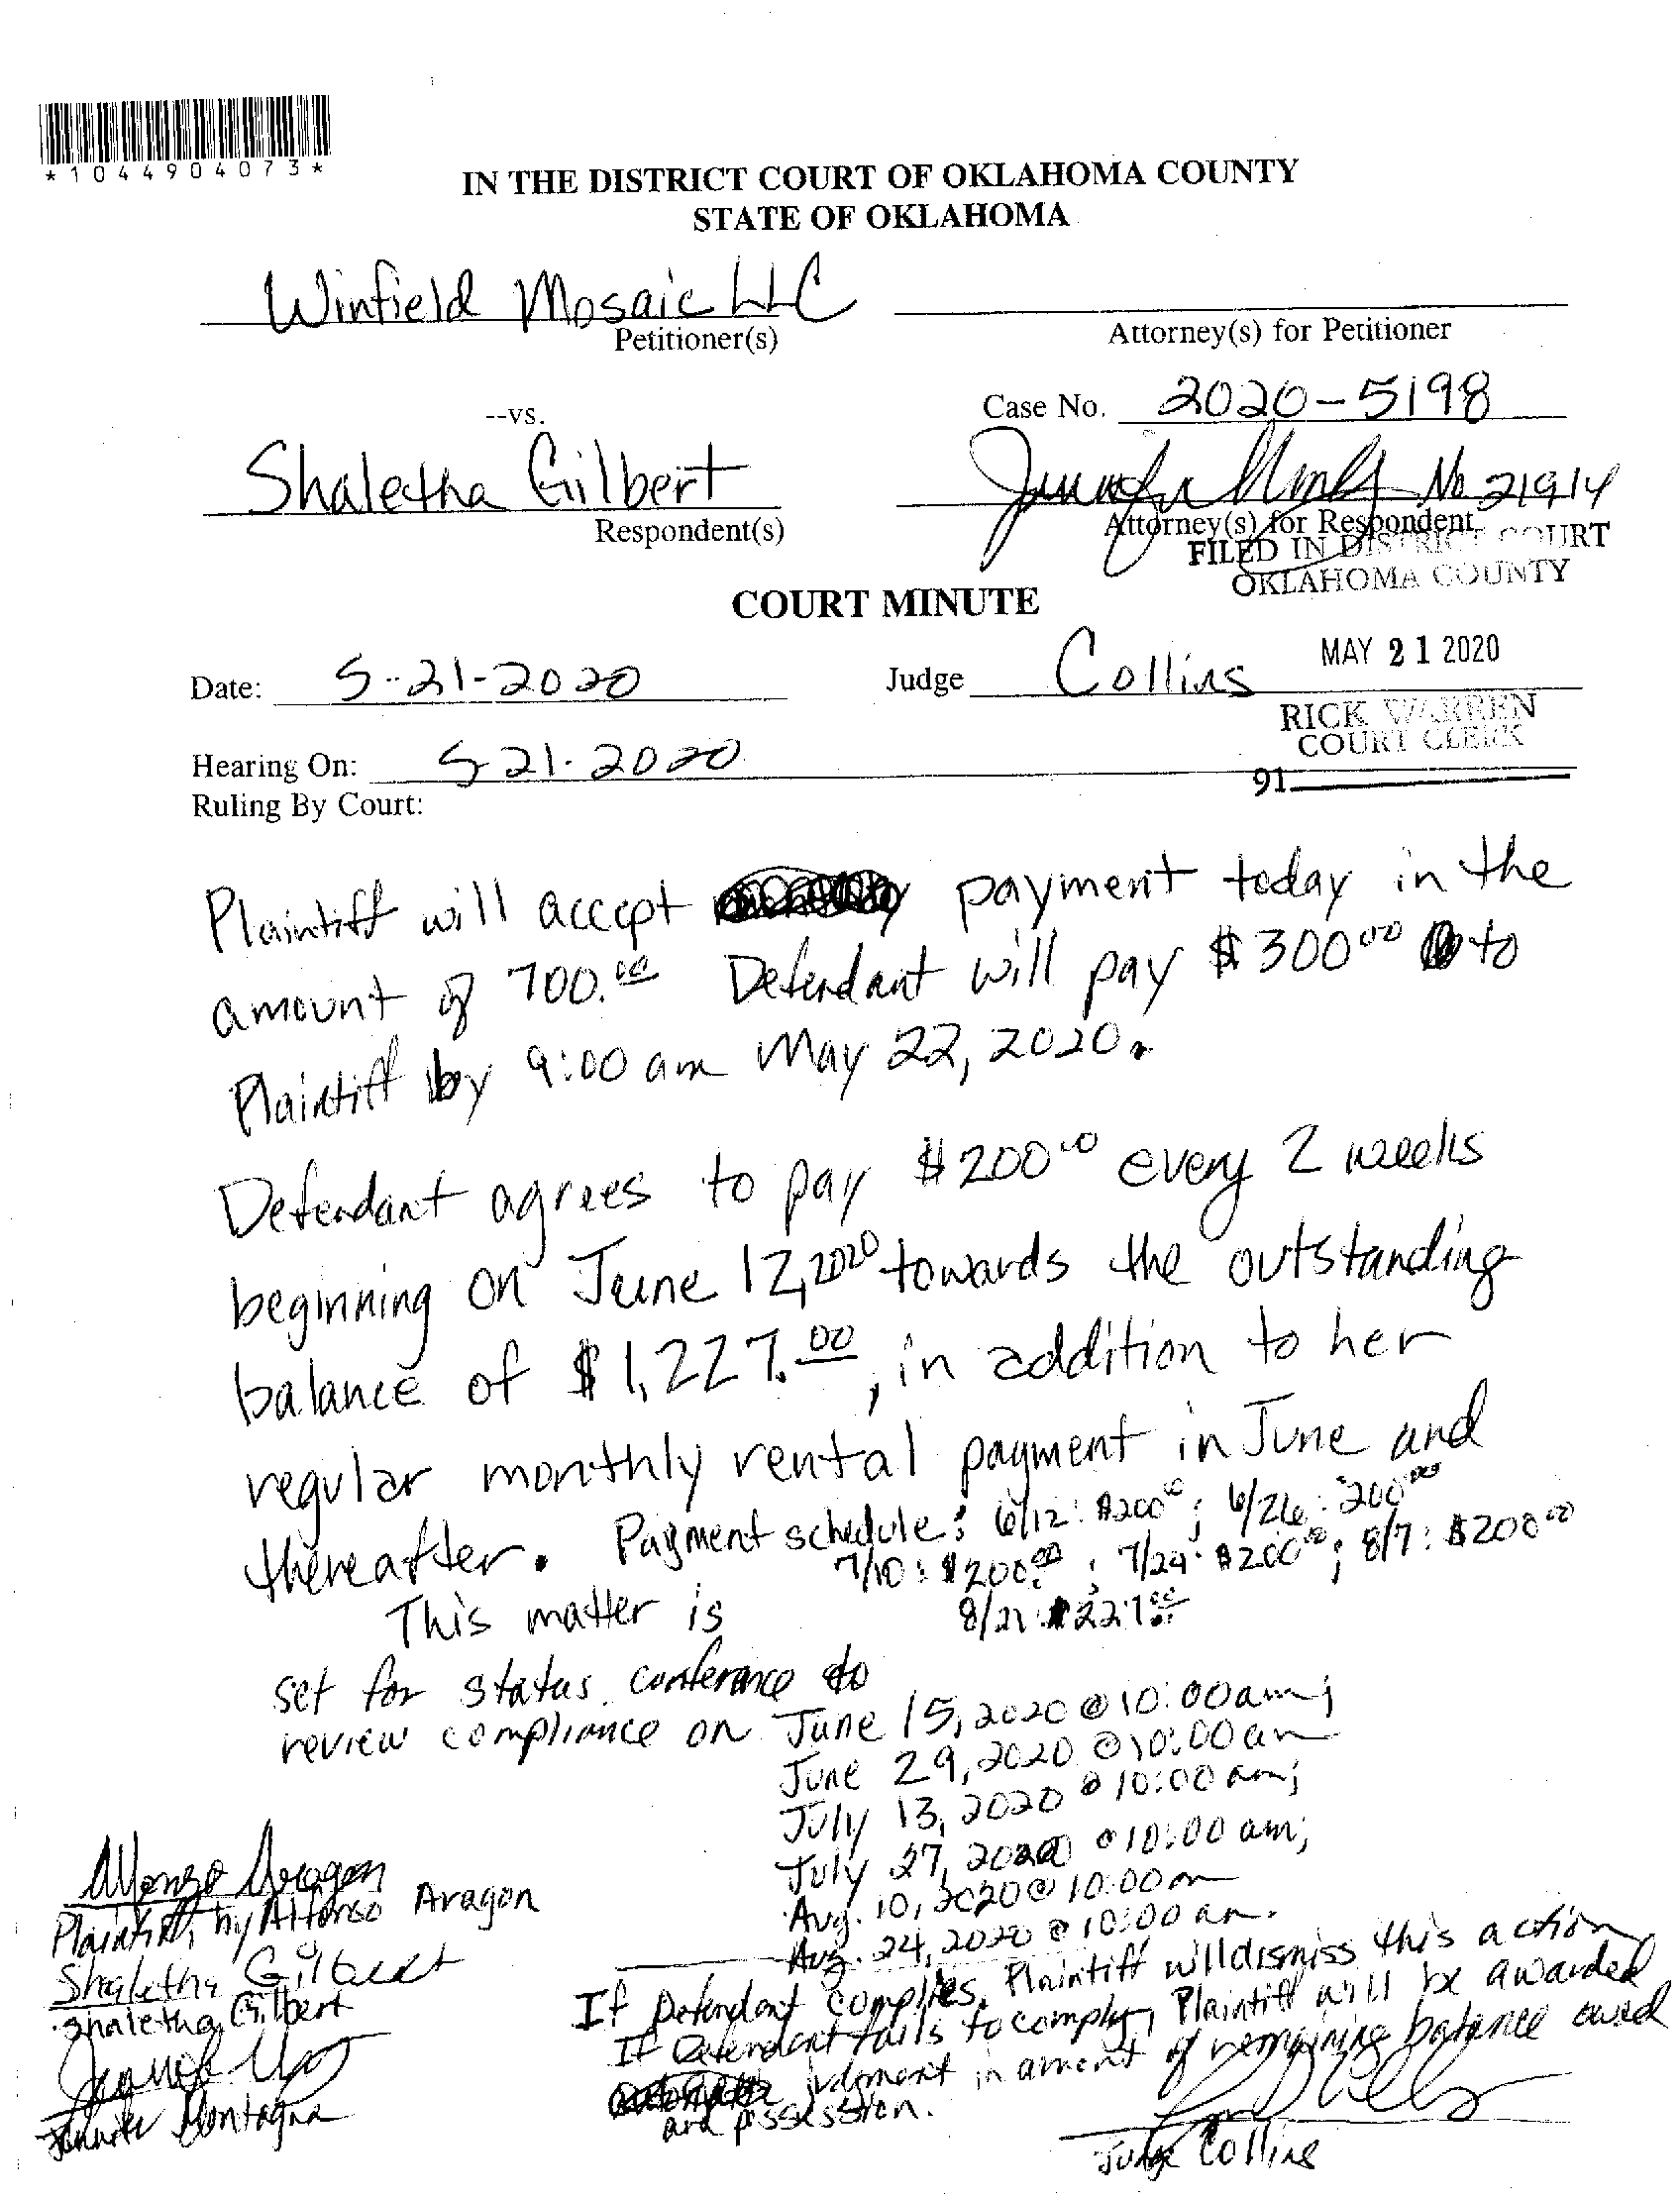 *1044904073*
IN THE DISTRICT COURT OF OKLAHOMA COUNTY
STATE OF OKLAHOMA
Winfield Mosaic LLC
Petitioner(s)
Attorney(s) for Petitioner
--vs.
Case No. 2020-5198
Shaletha Gilbert
Respondent(s)
No. 21914
Attorney(s) for Respondent
FILED IN DISTRICT COURT
OKLAHOMA COUNTY
COURT MINUTE
MAY 21 2020
Date: 5-21-2020
Judge Collins
RICK WARREN
COURT CLERK
Hearing On: 5-21-2020
91
Ruling By Court:
Plaintiff will accept payment today in the
amount of 700.00 Defendant will pay $300.00 to
Plaintiff by 9:00 am May 22, 2020.
Defendant agrees to pay $200.00 every 2 weeks
beginning on June 12, 2020 towards the outstanding
balance of $1,227.00, in addition to her
regular monthly rental payment in June and
thereafter. Payment schedule: 6/12: $200.00; 6/26: $200.00
7/10: $200.00; 7/24: $200.00; 8/7: $200.00
8/21: $227.00
This matter is
set for status conference to
review compliance on June 15, 2020 @ 10:00 am;
June 29, 2020 @ 10:00 am
July 13, 2020 @ 10:00 am;
July 27, 2020 @ 10:00 am;
Aug. 10, 2020 @ 10:00 am
Aug. 24, 2020 @ 10:00 am.
If Defendant complies, Plaintiff will dismiss this action
If Defendant fails to comply, Plaintiff will be awarded
judgment in amount of remaining balance owed
and possession.
Alfonso Aragon
Plaintiff, by Alfonso Aragon
Shaletha Gilbert
Shaletha Gilbert
Jennifer Montagna
Judge Collins